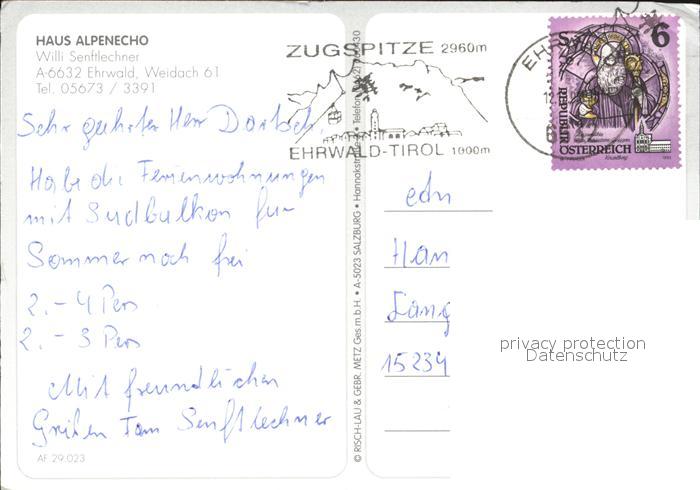 HAUS ALPENECHO
Willi Senftlechner
A-6632 Ehrwald, Weidach 61
Tel. 05673 / 3391
Sehr geehrter Herr
Habe die Ferienwohnungen
mit Südbalkon für
Sommer noch frei
2.-4 Pers
2.-3 Pers
Mit freundlichen
Grüßen Fam Senftlechner
AF 29.023
© RISCH-LAU & GEBR. METZ Ges.m.b.H. • A-5023 SALZBURG •
ZUGSPITZE 2960m
EHRWALD-TIROL 1000m
6
REPUBLIK
ÖSTERREICH
Han
15234
privacy protection
Datenschutz